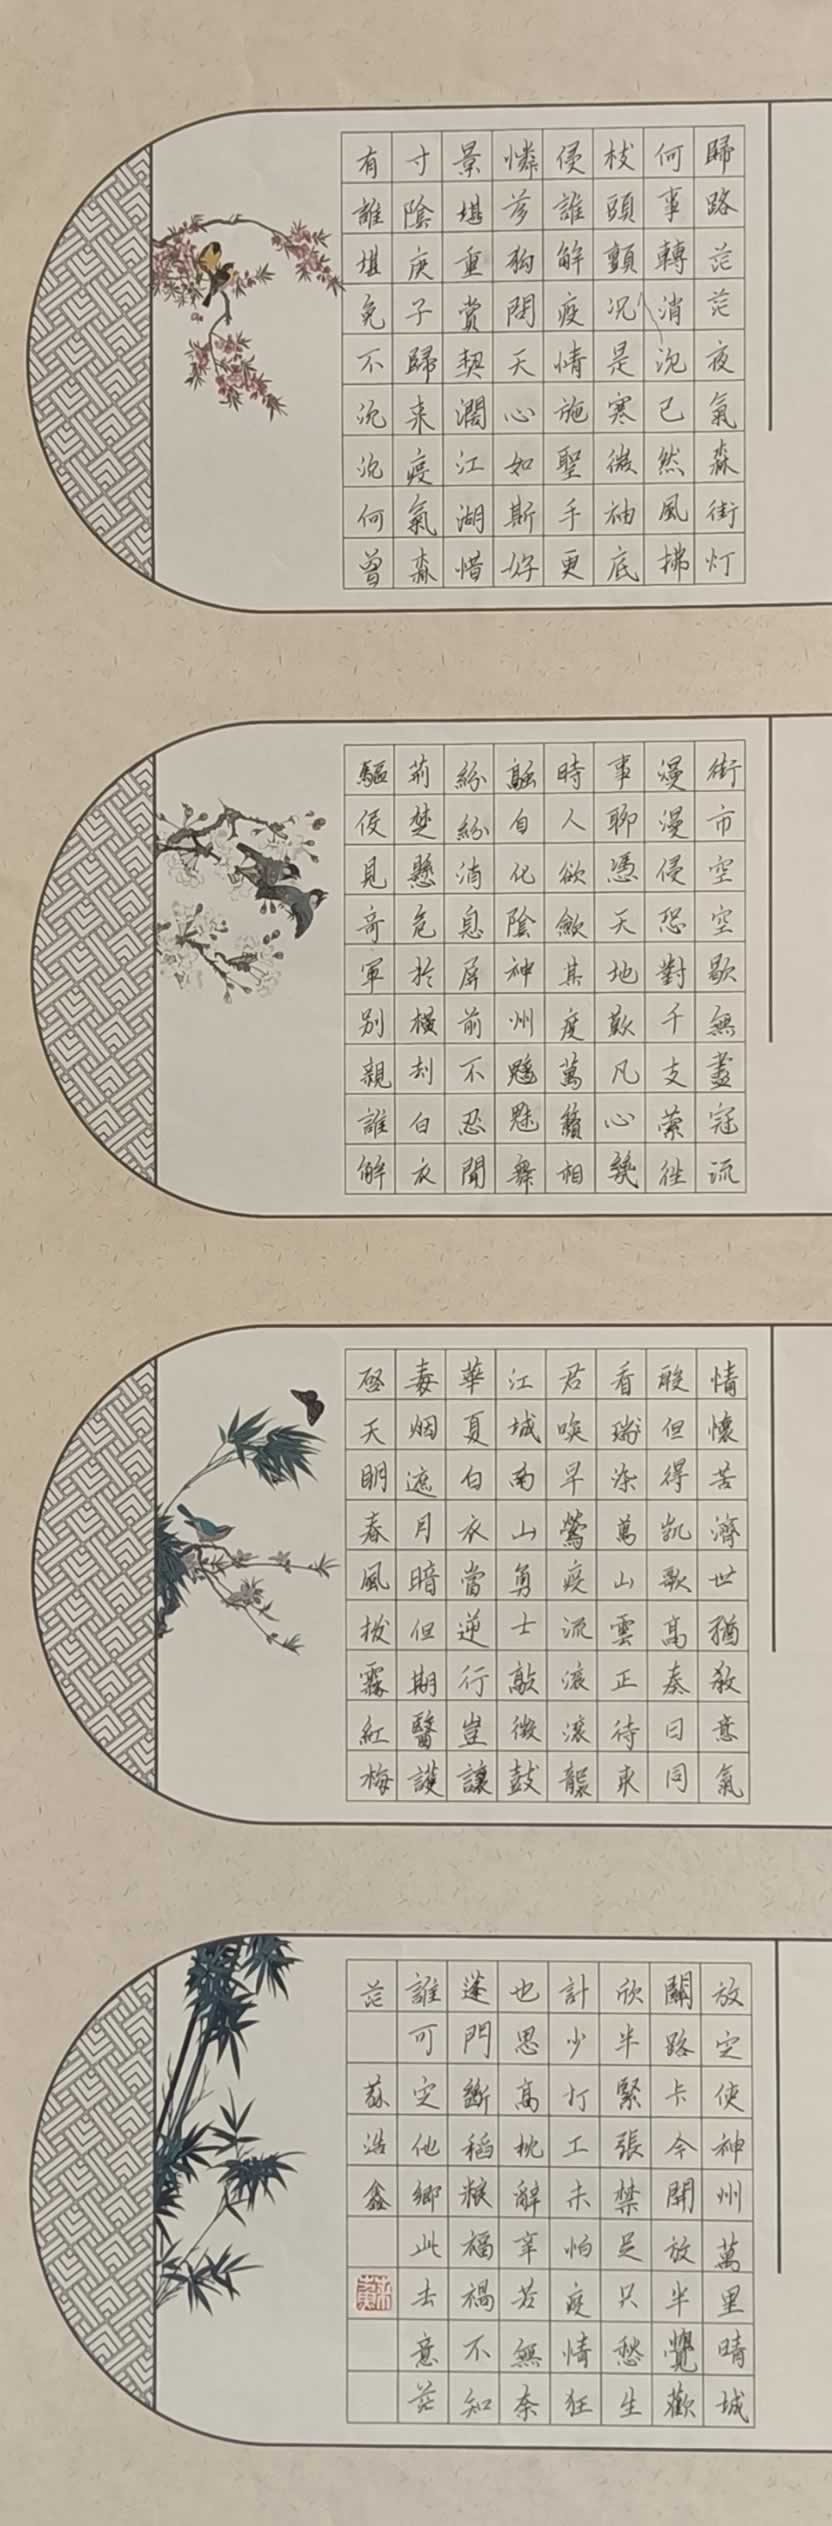 歸路茫茫夜氣森街灯
何事轉消沉已然風拂
枝頭顫况是寒微袖底
侵誰解疫情施聖手更
憐芻狗問天心如斯好
景堪重賞契濶江湖惜
寸陰庚子歸来疫氣森
有誰堪免不沉沉何曾
街市空空歇無盡冦流
漫漫侵恐對千支縈徃
事聊憑天地歎凡心幾
時人欲歛其度萬籟相
融自化陰神州魑魅舞
紛紛消息屏前不忍聞
荊楚懸危扵橫刦白衣
驅使見奇軍別親誰解
情懷苦濟世猶教意氣
殷但得凱歌高奏日同
看瑞染萬山雲正待東
君喚早鶯疫流滚滚襲
江城南山勇士敲徵鼓
華夏白衣當逆行豈讓
毒烟遮月暗但期醫護
啓天明春風拔霧紅梅
放定使神州萬里晴城
關路卡今開放半覺歡
欣半緊張禁足只愁生
計少打工未怕疫情狂
也思高枕辭辛苦無奈
蓬門斷稻粮福禍不知
誰可定他鄉此去意茫
茫 蘇浩鑫